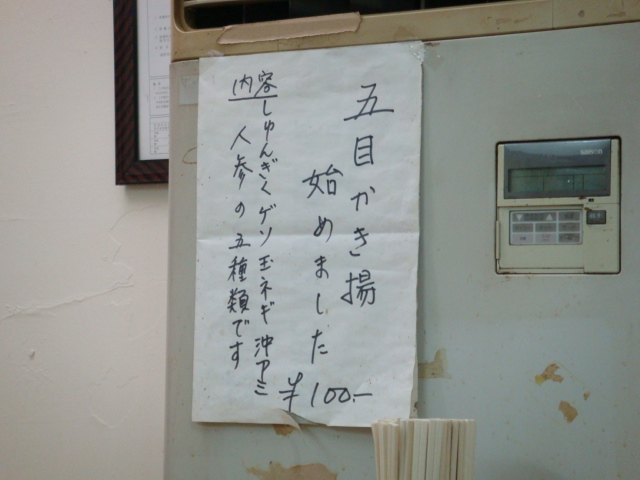 五目かき揚
始めました
¥100-
内容
しゅんぎくゲソ玉ネギ沖アミ
人参の五種類です